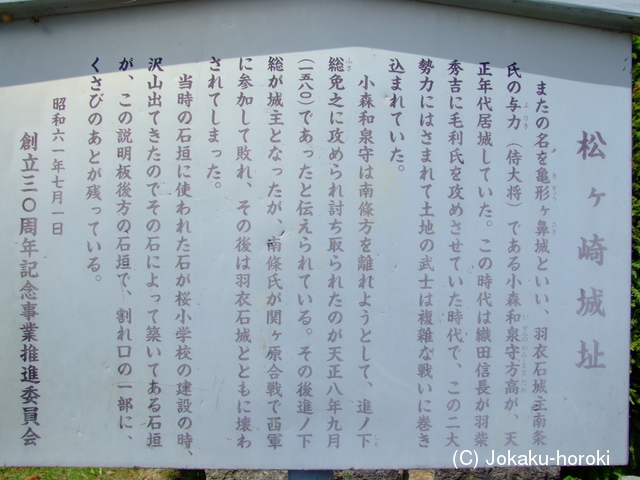 松ヶ崎城址
またの名を亀形ヶ鼻城といい、羽衣石城主南条
氏の与力（侍大将）である小森和泉守方高が、天
正年代居城していた。この時代は織田信長が羽柴
秀吉に毛利氏を攻めさせていた時代で、この二大
勢力にはさまれて土地の武士は複雑な戦いに巻き
込まれていた。
小森和泉守は南條方を離れようとして、進ノ下
総免之に攻められ討ち取られたのが天正八年九月
（一五八〇）であったと伝えられている。その後進ノ下
総が城主となったが、南條氏が関ヶ原合戦で西軍
に参加して敗れ、その後は羽衣石城とともに壊わ
されてしまった。
当時の石垣に使われた石が桜小学校の建設の時、
沢山出てきたのでその石によって築いてある石垣
が、この説明板後方の石垣で、割れ口の一部に、
くさびのあとが残っている。
昭和六一年七月一日
創立三〇周年記念事業推進委員会
(C) Jokaku-horoki